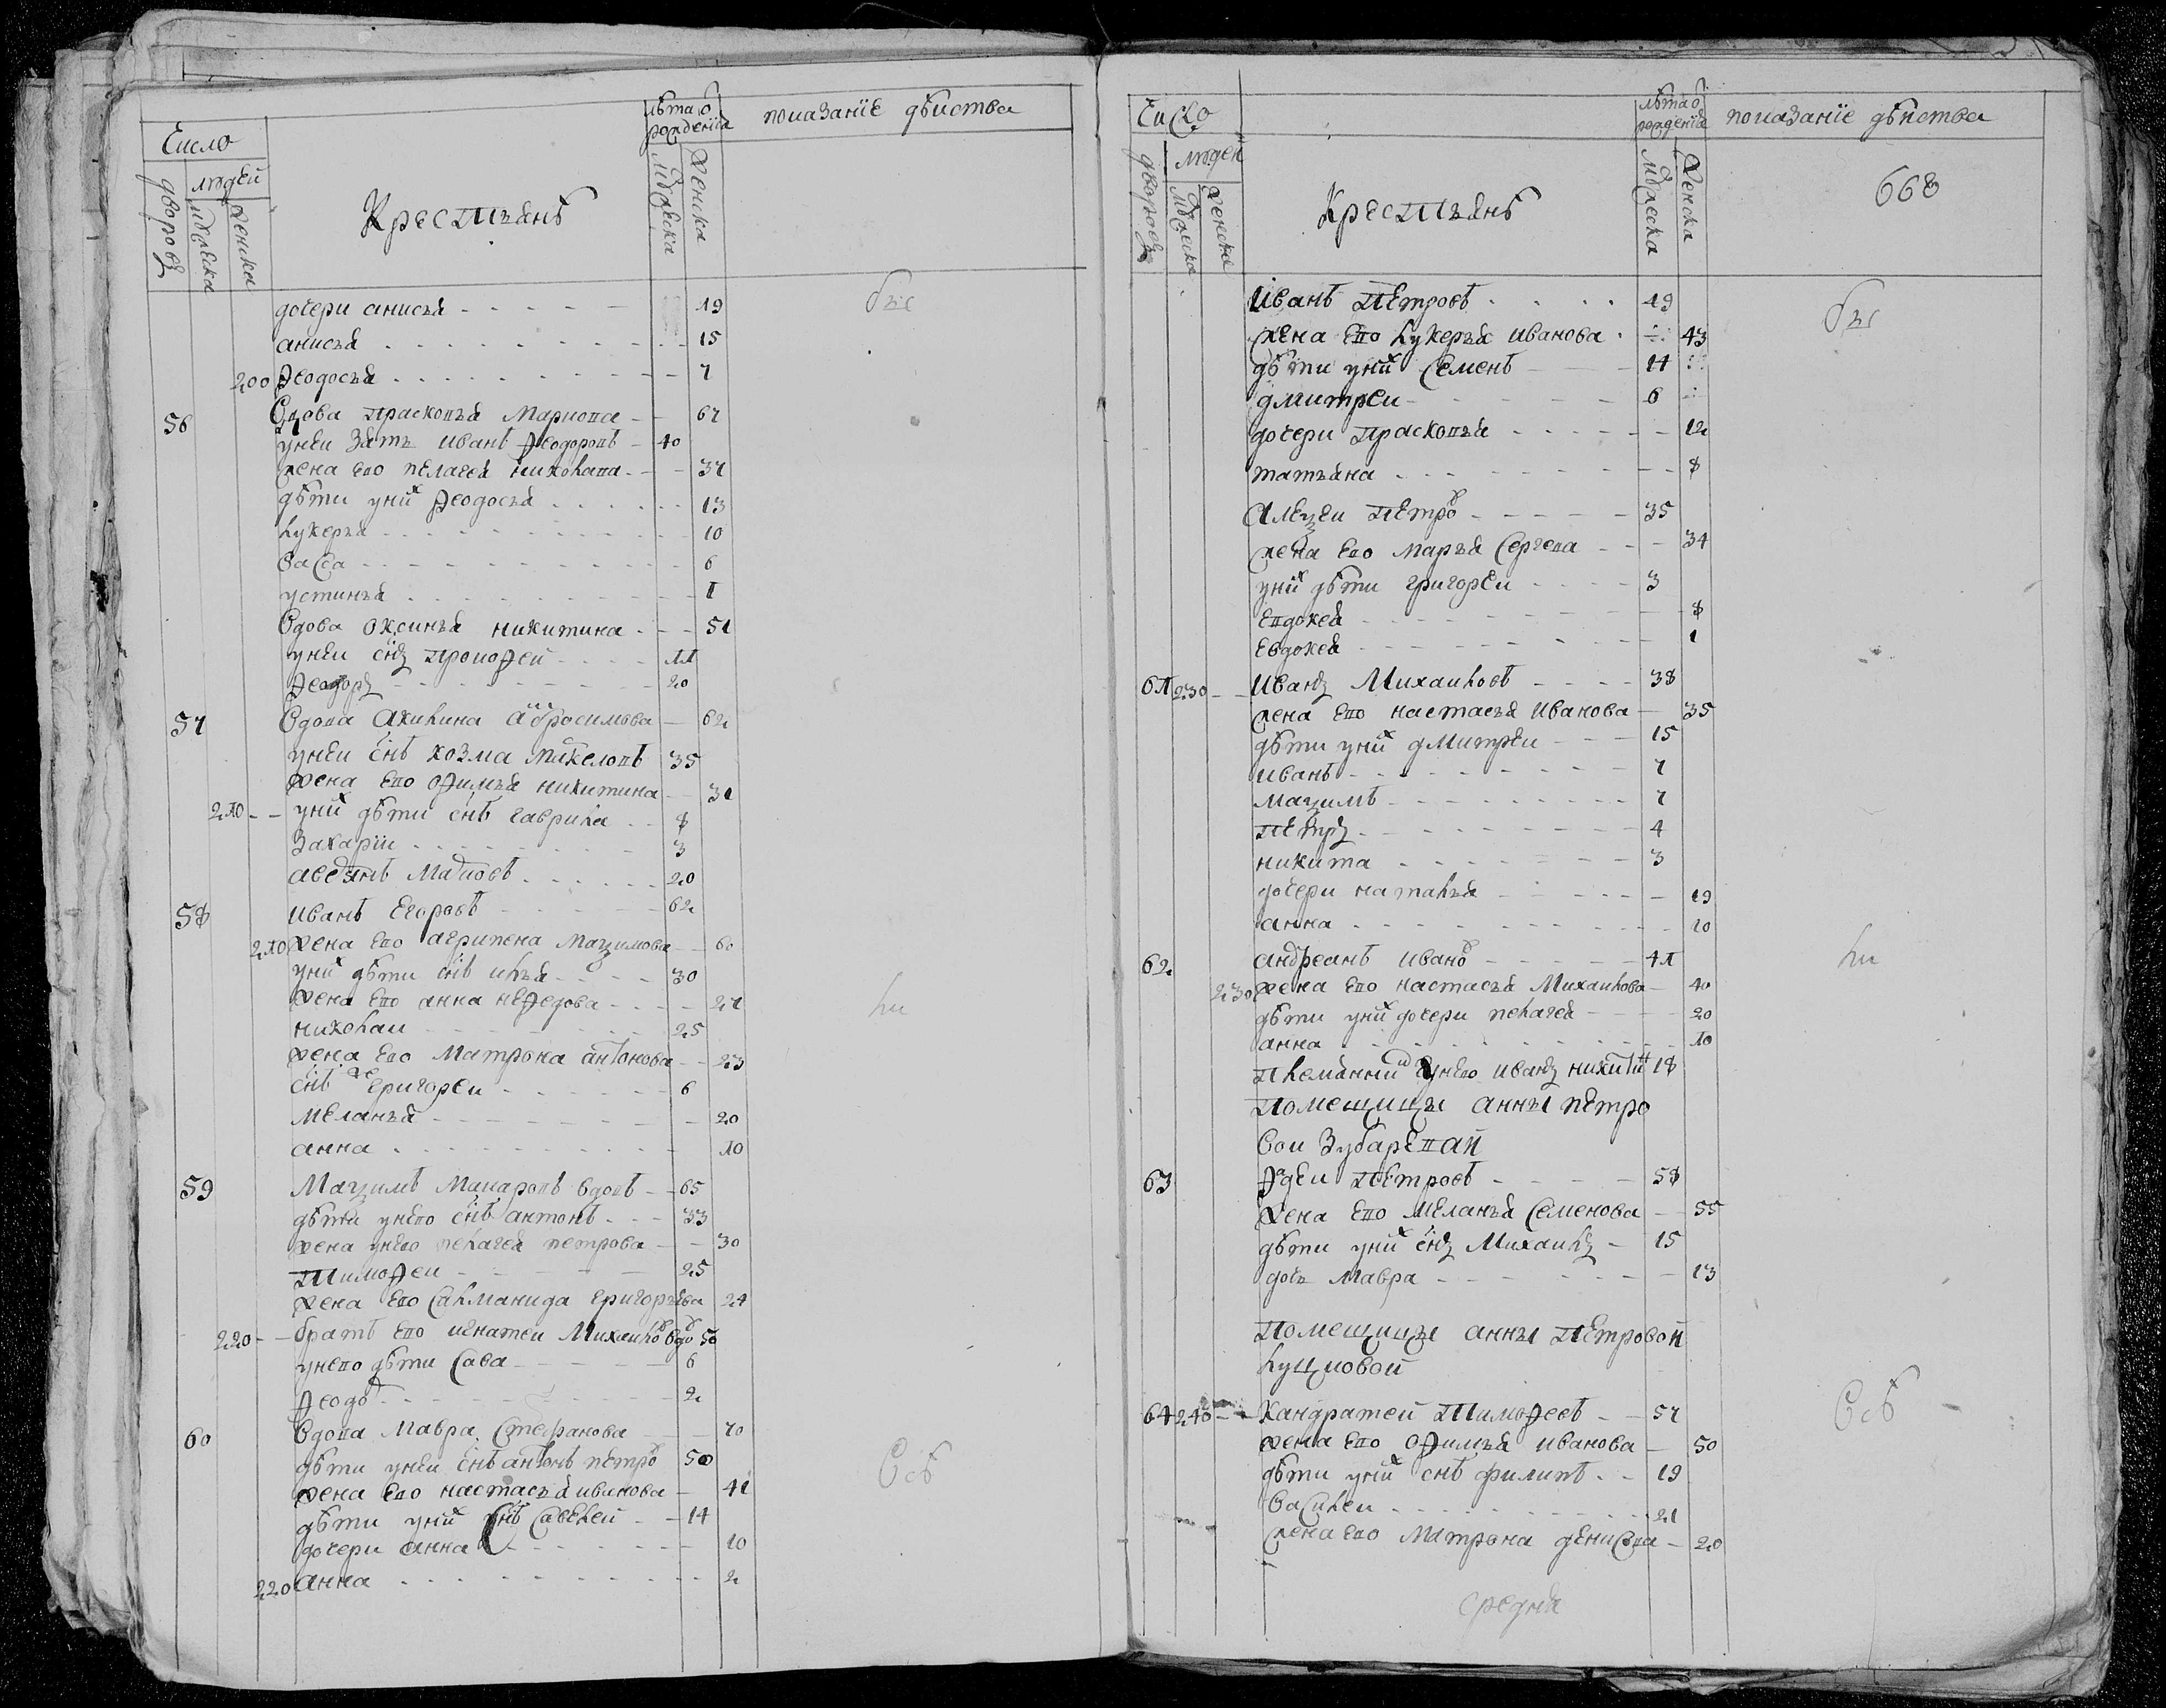 Число
людей
дворовъ
мужеска
женска
Крестьянъ
лѣта ѿ рождения
мужеска
женска
показанїе дѣиства
дочери анисья 19
анисья 15
200 Ѳеодосья 7
56 Вдова праскопья Маркова 67
унеи зять иванъ Ѳеодоровъ 40
жена ево пелагея николава 37
дѣти уних Ѳеодосья 13
лукерья 10
васса 6
устинья 1
Вдова оксинья никитина 51
унеи снъ прокоѲеи
Ѳеодоръ 20
57 Вдова Акилина абросимова 62
унеи снъ козма 35
жена ево оѲимья никитина 31
210 уних дѣти снъ гаврила 8
Захарїи 3
20
58 иванъ Егоровъ 62
210 жена ево агрипена маѯимова 60
уних дѣти снъ илья 30
жена ево анна неѲедова 27
николаи 25
жена ево Матрона антонова 23
снъ Григореи 6
меланья 20
анна 10
59 Маѯимъ Макаровъ вдовъ 65
дѣти унево снъ антонъ 33
жена унево пелагея петрова 30
ТимоѲеи 25
жена ево Салманида григорьева 24
220 братъ ево игнатеи Михаило вдо 50
унево дѣти Сава 6
Ѳеодо 2
60 Вдова Мавра Стефанова 70
дѣти унеи снъ антонъ петро 50
жена ево настасья иванова 41
дѣти уних снъ Савелеи 14
дочери анна 10
220 анна 2
бы
ли
Всѣ
Число
людей
дворовъ
мужеска
женска
Крестьянъ
лѣта ѿ рождения
мужеска
женска
показанїе дѣиства
668
иванъ Петровъ 49
жена ево лукерья иванова 43
дѣти уних Семенъ 14
дмитреи 6
дочери праскопья 12
татьяна 8
Алеѯеи Петро 35
жена ево марья Сергева 34
уних дѣти григореи 3
Евдокея 8
Евдокея 1
61 230 Иванъ Михаиловъ 38
жена ево настасья иванова 35
дѣти уних дмитреи 15
иванъ 7
маѯимъ 7
Петръ 4
никита 3
дочери наталья 19
анна 10
62 андреанъ ивано 41
230 жена ево настасья Михаилова 40
дѣти уних дочери пелагея 20
анна 10
Племянникъ унево иванъ никитин 18
Помещицы анны петро
вои Зубаревай
63 Ѳдеи Петровъ 58
жена ево меланья Семенова 55
дѣти уних снъ Михаилъ 15
дочь мавра 13
Помещицы анны петровой
64 240 Кандратеи ТимоѲеевъ 57
жена ево оѲимья иванова 50
дѣти уних снъ филипъ 19
Василеи 21
жена ево матрона дениСва 20
бы
ли
Всѣ
средня